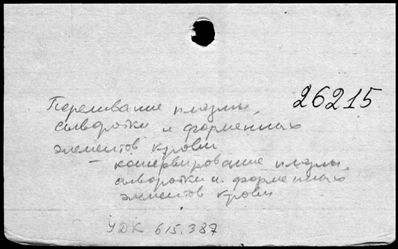 Переливание плазмы,
26215
сыворотки и форменных
элементов крови
– консервирование плазмы,
сыворотки и форменных
элементов крови
УДК 615.387